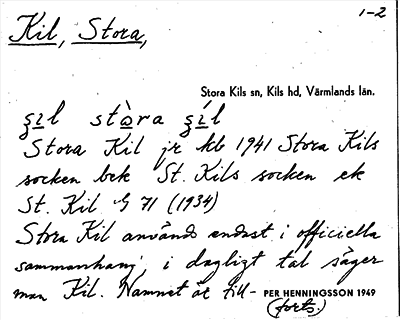 1-2
Kil, Stora,
Stora Kils sn, Kils hd, Värmlands län.
Stora Kil jr kb 1941 Stora Kils
socken bek St. Kils socken ek
St. Kil G 71 (1934)
Stora Kil används endast i officiella
sammanhang, i dagligt tal säger
man Kil. Namnet är till-
PER HENNINGSSON 1949
(forts.)